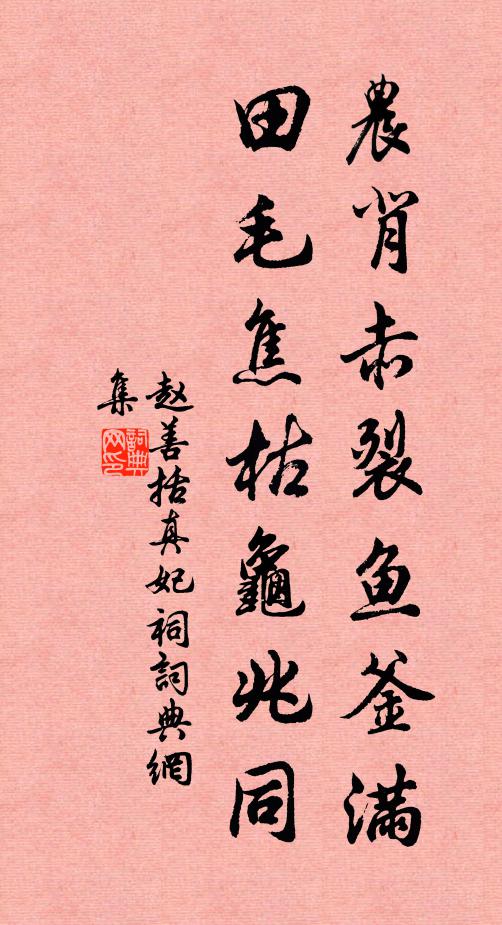 農背赤裂魚釜滿
田毛焦枯龜兆同
赵善括真妃祠詞典網
集
詞典网印